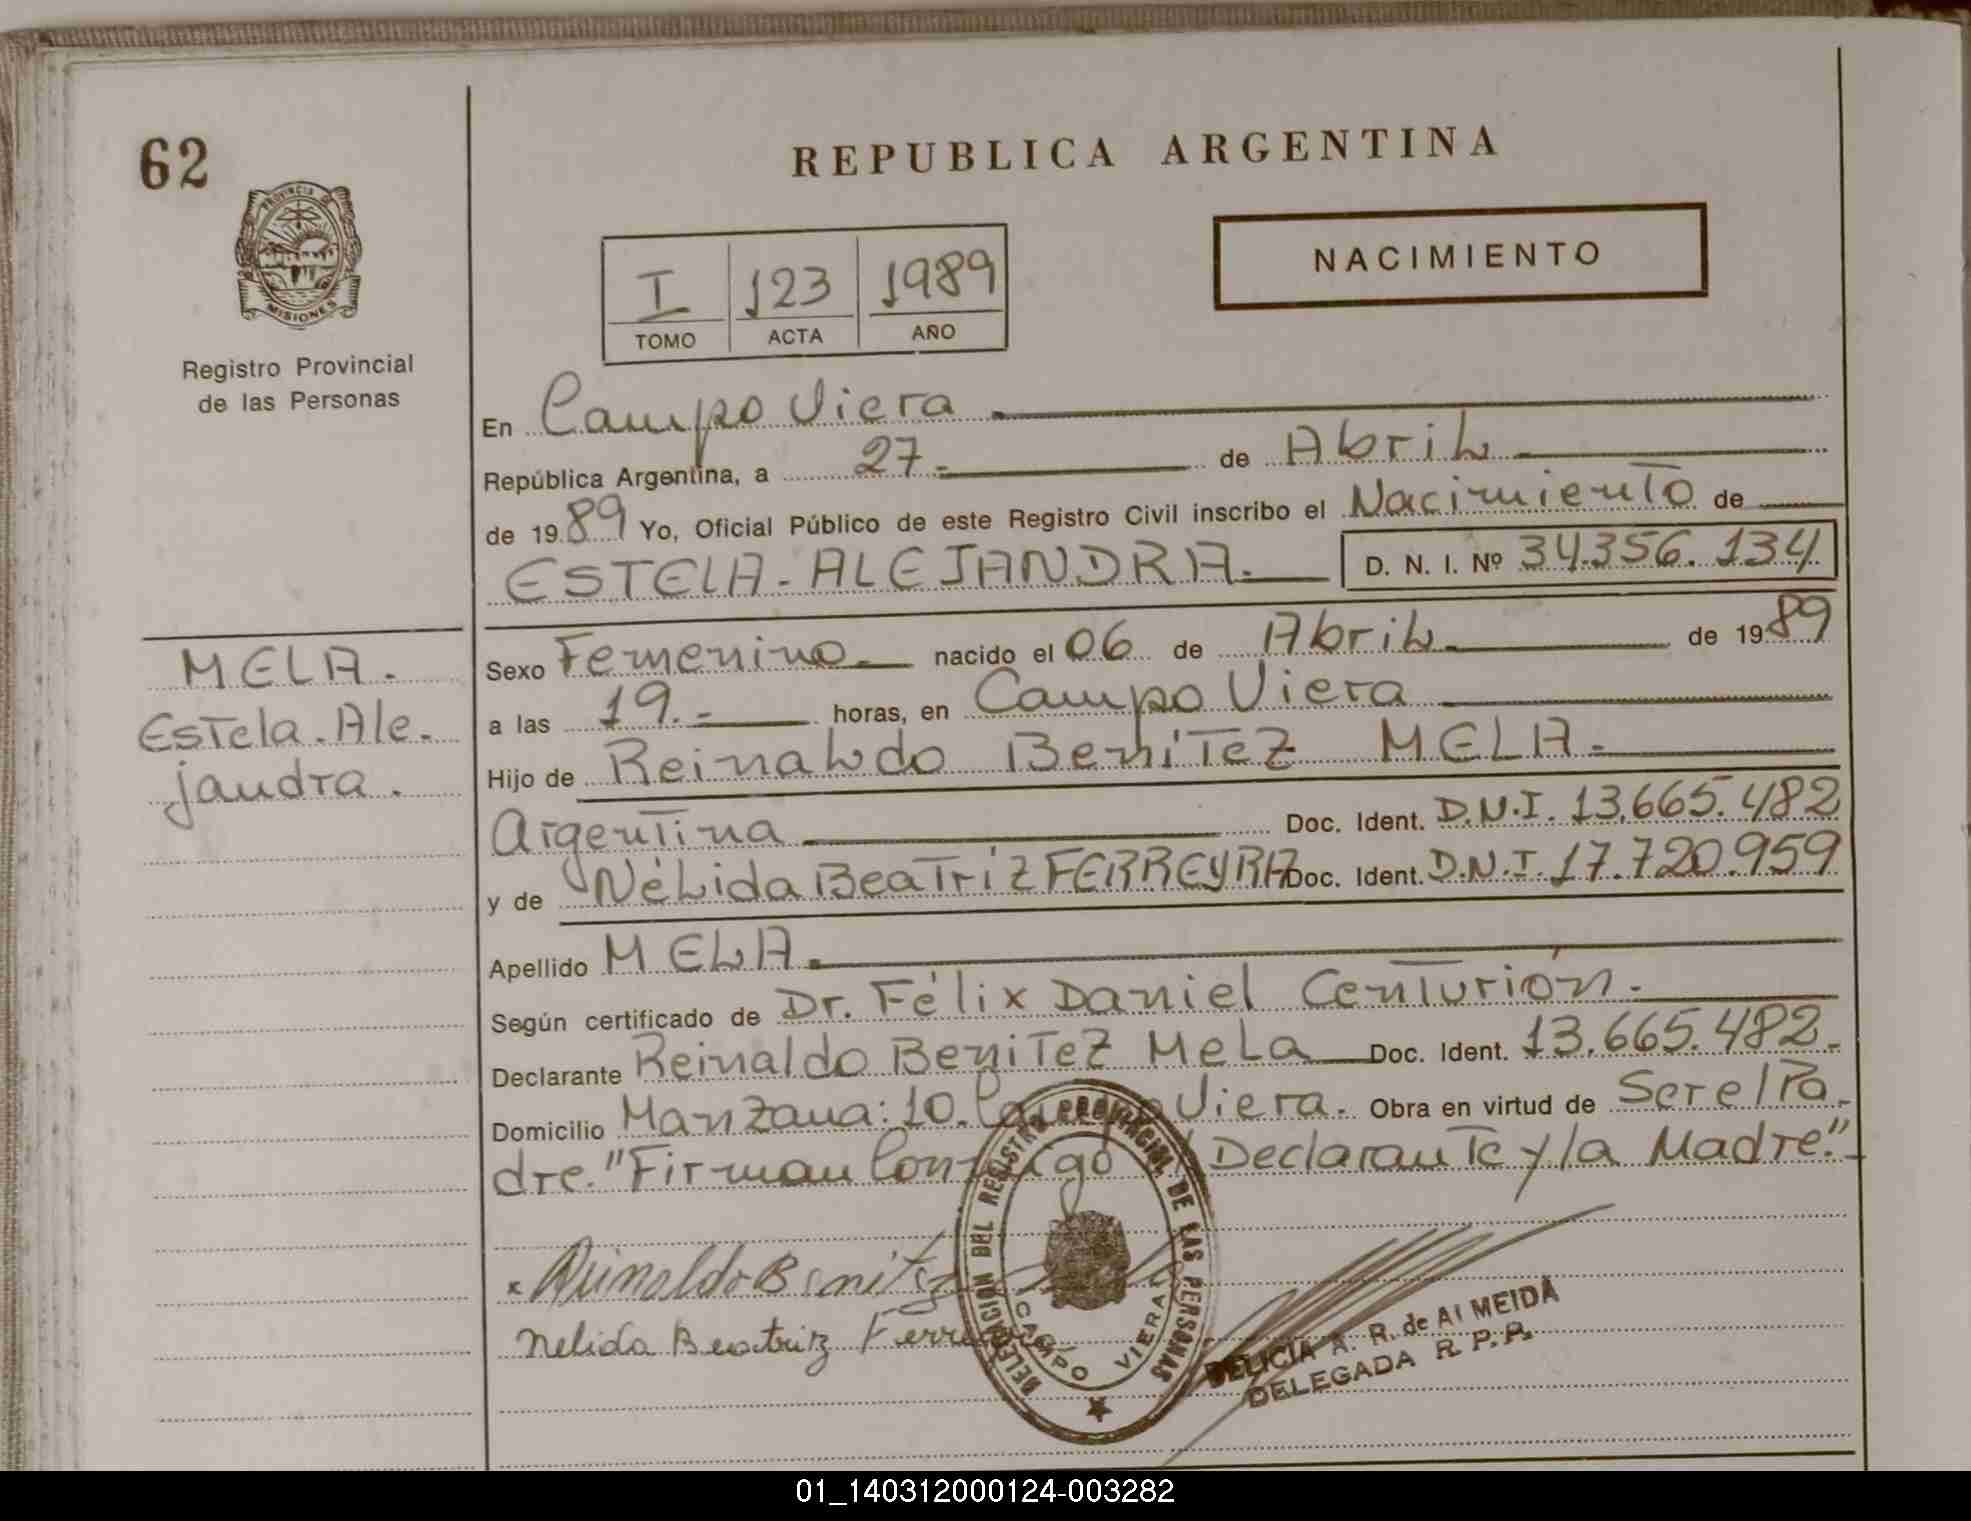 62
REPUBLICA ARGENTINA
PROVINCIA DE
MISIONES
Registro Provincial
de las Personas
I 123 1989
TOMO ACTA AÑO
NACIMIENTO
En Campo Viera
República Argentina, a 27.- de Abril
de 1989 Yo, Oficial Público de este Registro Civil inscribo el Nacimiento de
ESTELA-ALEJANDRA. D. N. I. Nº 34.356.134
MELA.
Estela-Ale-
jandra.
Sexo Femenino.- nacido el 06 de Abril de 1989
a las 19.- horas, en Campo Viera
Hijo de Reinaldo Benitez MELA.-
Argentina Doc. Ident. D.N.I. 13.665.482
y de Nélida Beatriz FERREYRA Doc. Ident. D.N.I. 17.720.959
Apellido MELA.
Según certificado de Dr. Félix Daniel Centurión.
Declarante Reinaldo Benitez Mela Doc. Ident. 13.665.482.-
Domicilio Manzana: 10. Campo Viera. Obra en virtud de Ser el Pa-
dre. "Firman Conmigo Declarante y la Madre".-
x Reinaldo Benitez
Nelida Beatriz Ferreyra
DELEGACION DEL REGISTRO PROVINCIAL DE LAS PERSONAS
CAMPO VIERA
DELICIA A. R. de ALMEIDA
DELEGADA R. P. P.
01_140312000124-003282